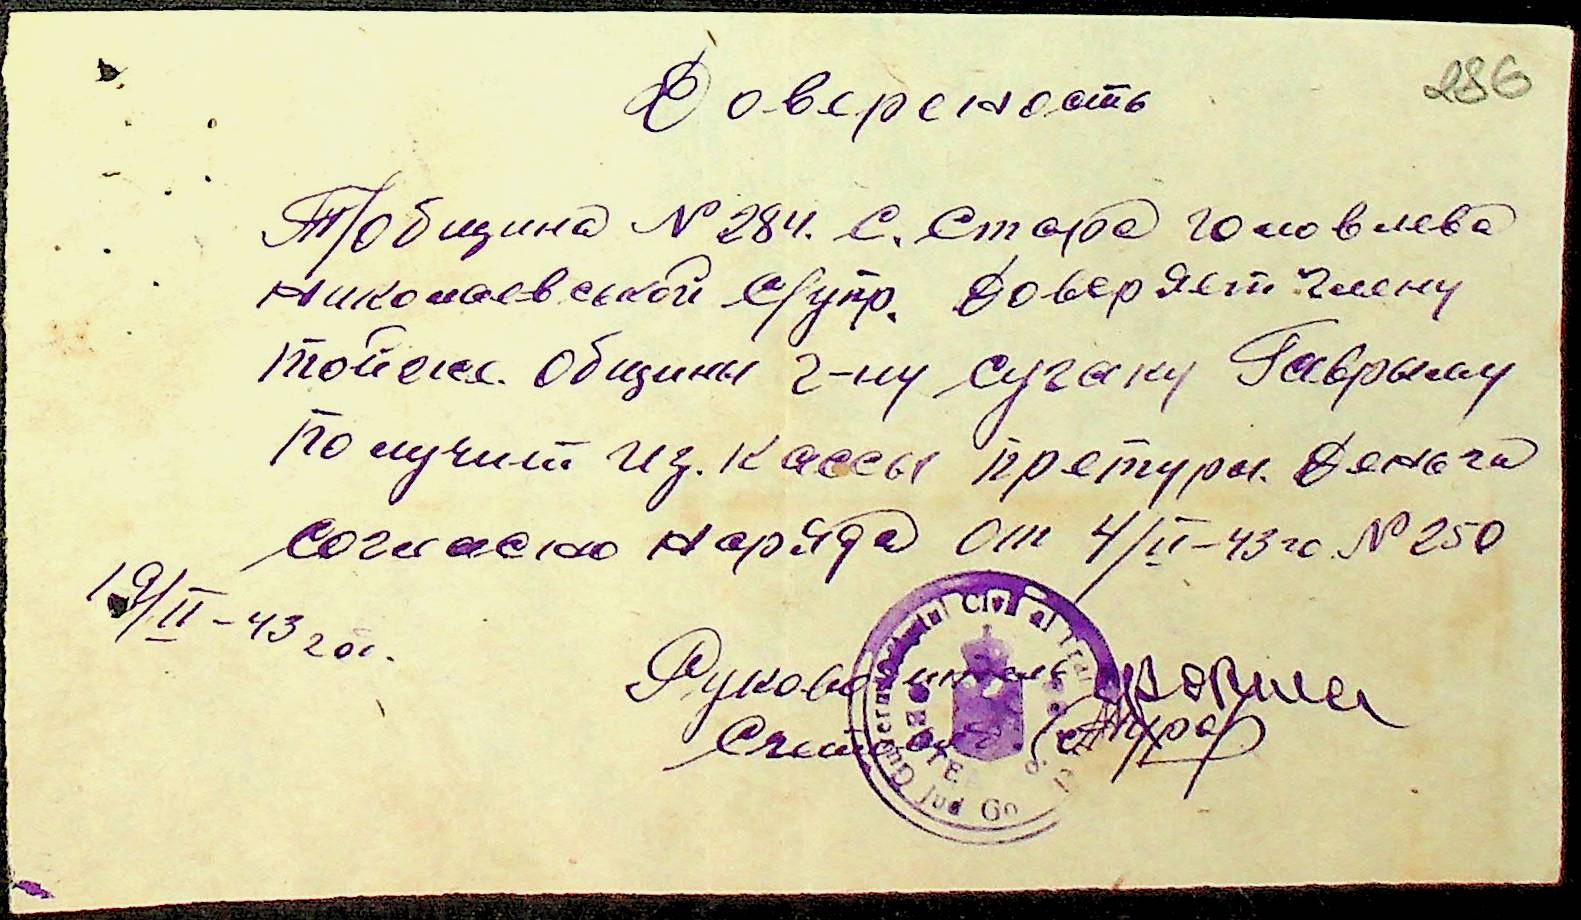 286
Довереность
Т/Община № 284. С. Стара Головлева
Николаевськой С/упр. Доверяет члену
тойже. Общины г-ну Сугаку Гаврылу
Получит из. Кассы претуры. Деньга
согласно наряда от 4/II-43 го. № 250
19/II-43 год.
Руководитель
Счетовод
Guvernământul Civil al Tran
Jud Go